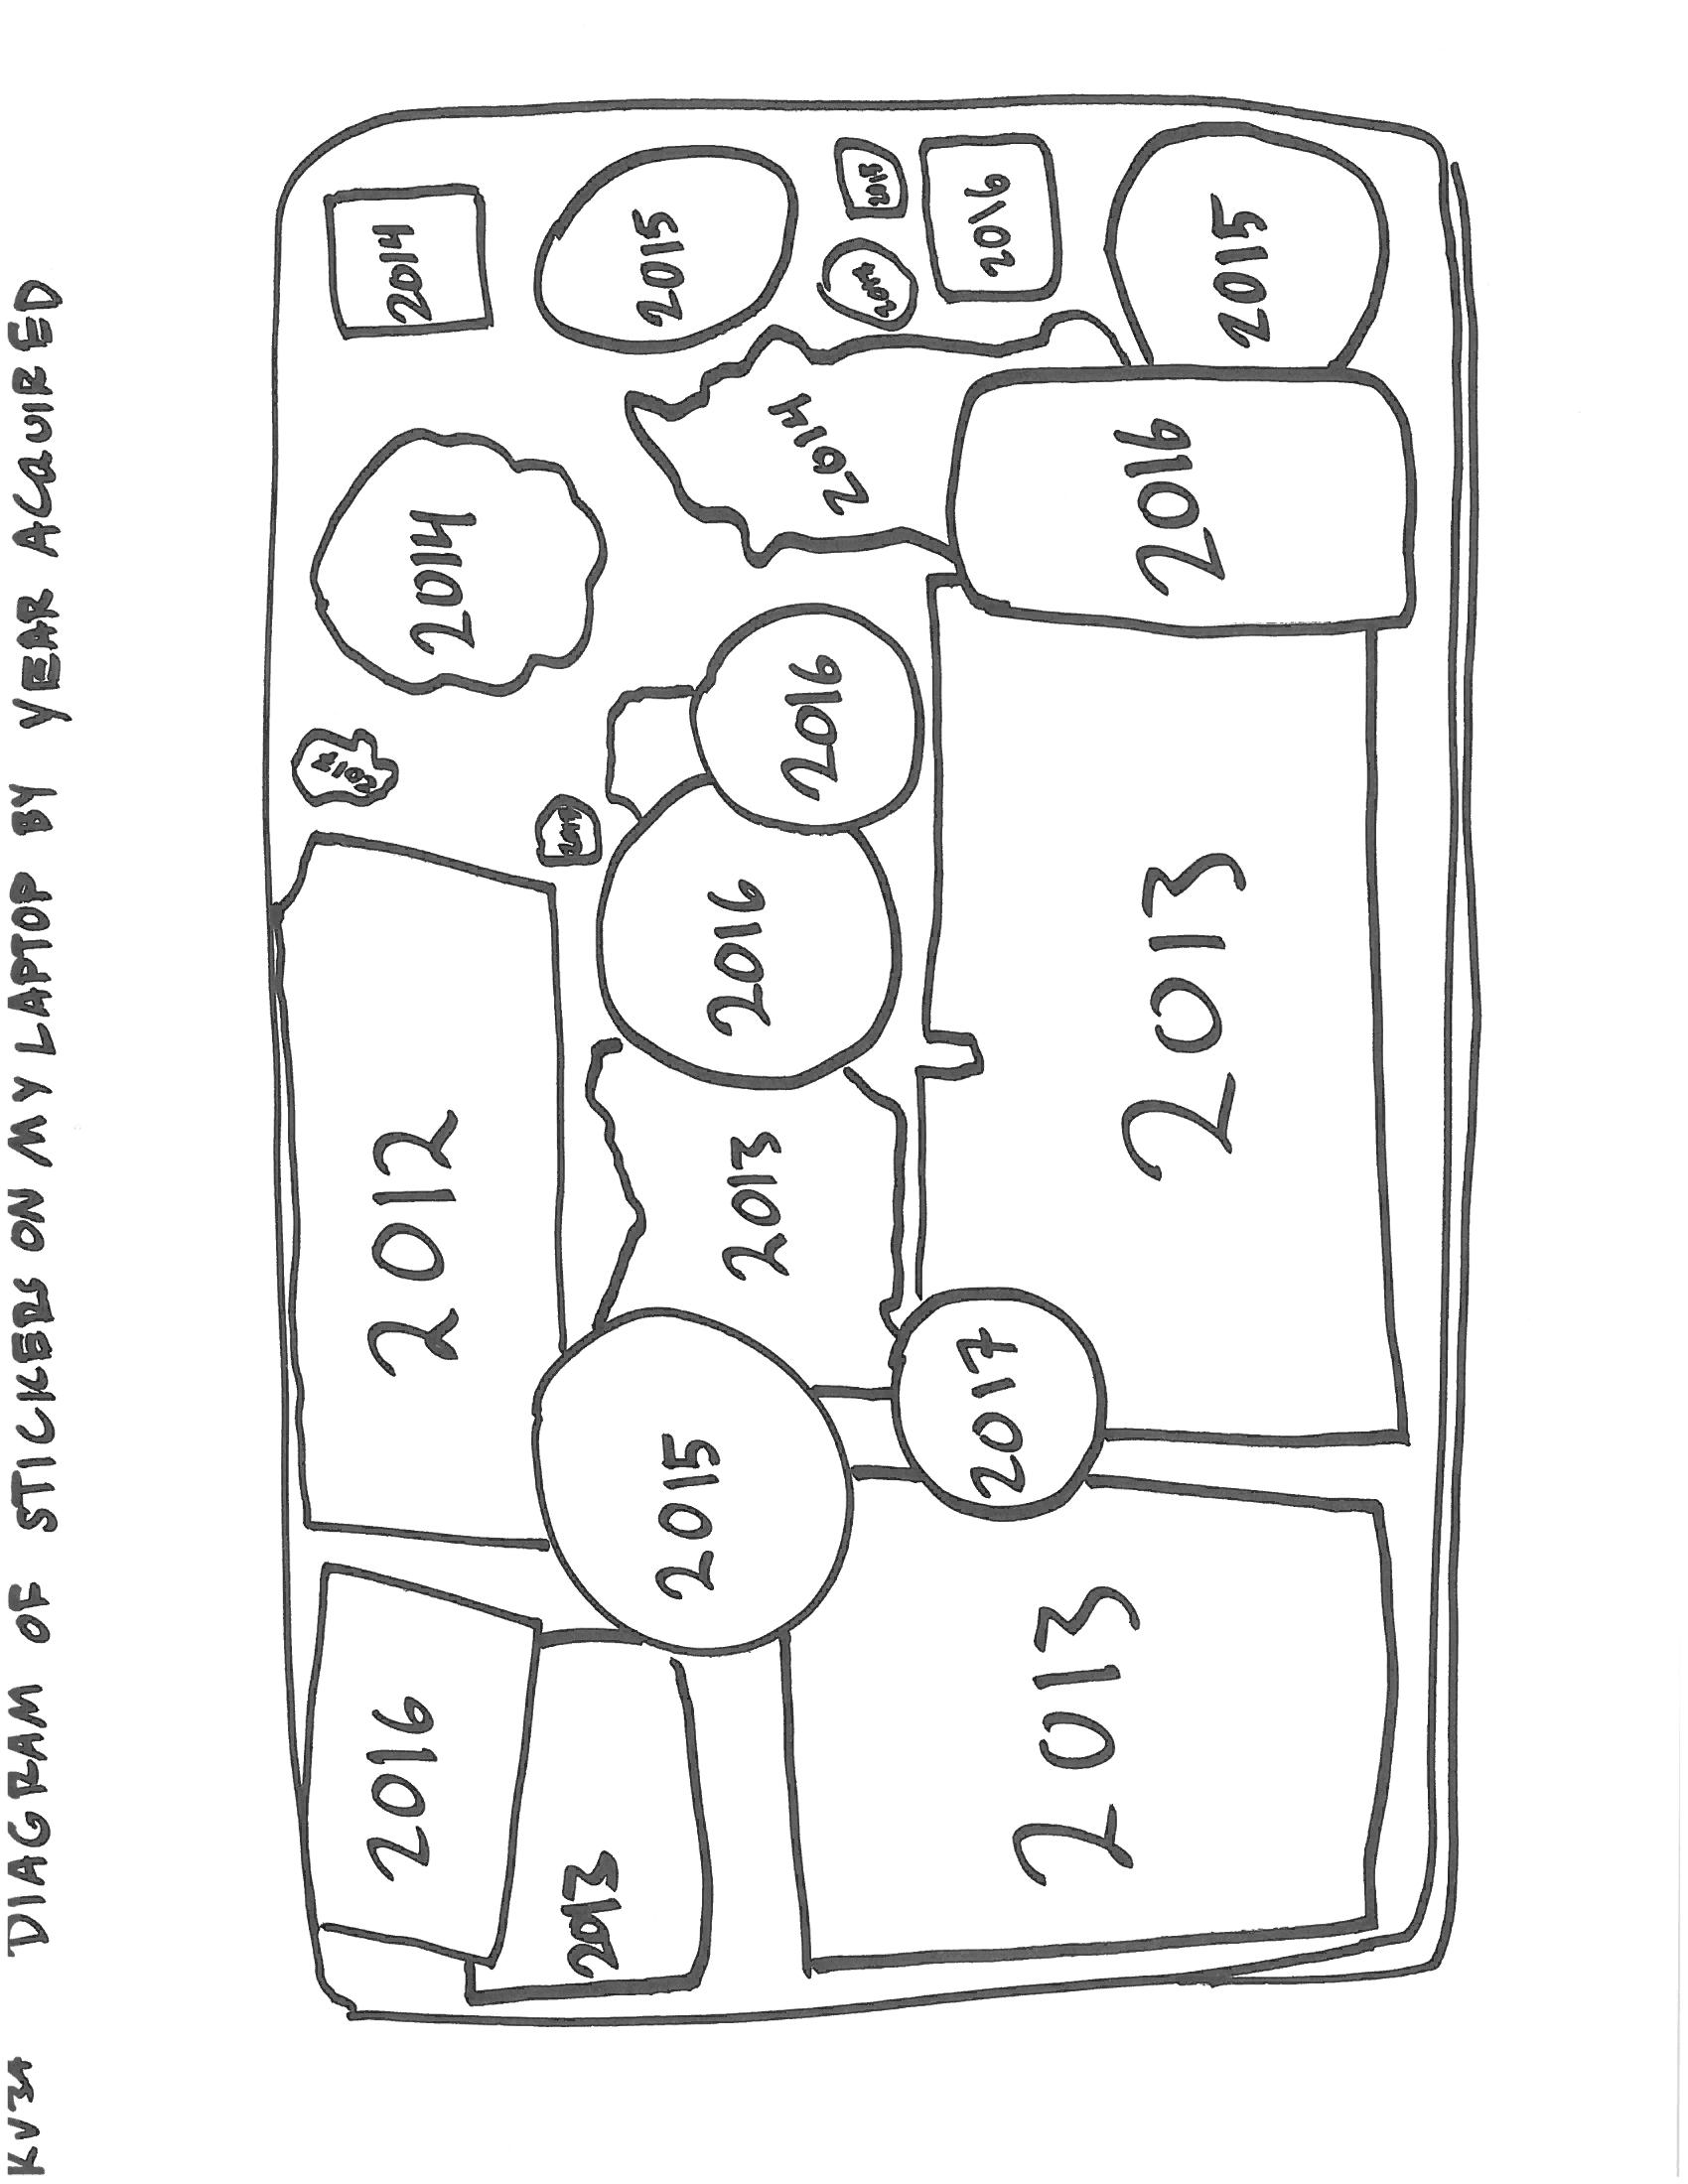 KV34 DIAGRAM OF STICKERS ON MY LAPTOP BY YEAR ACQUIRED
2016
2012
2014
2014
2014
2013
2015
2013
2016
2016
2014
2015
2014
2017
2016
2013
2013
2016
2015